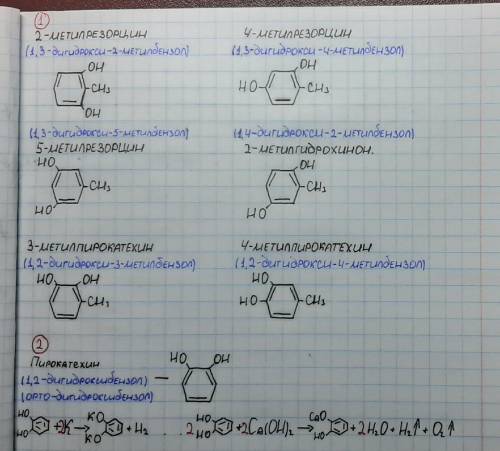 1
2-метилрезорцин
(1,3-дигидрокси-2-метилбензол)
OH
CH₃
OH
4-метилрезорцин
(1,3-дигидрокси-4-метилбензол)
OH
HO
CH₃
(1,3-дигидрокси-5-метилбензол)
5-метилрезорцин
HO
CH₃
HO
(1,4-дигидрокси-2-метилбензол)
2-метилгидрохинон.
OH
CH₃
HO
3-метилпирокатехин
(1,2-дигидрокси-3-метилбензол)
HO OH
CH₃
4-метилпирокатехин
(1,2-дигидрокси-4-метилбензол)
HO
HO
CH₃
2
Пирокатехин
(1,2-дигидроксибензол) —
(орто-дигидроксибензол)
HO OH
HO HO + 2K → KO KO + H₂
2 HO HO + 2Ca(OH)₂ → CaO HO + 2H₂O + H₂↑ + O₂↑